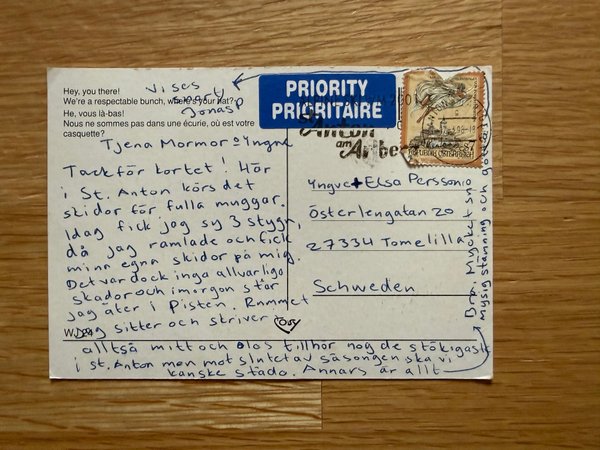 Hey, you there!
We're a respectable bunch, where's your hat?
He, vous là-bas!
Nous ne sommes pas dans une écurie, où est votre
casquette?
PRIORITY
PRIORITAIRE
St. Anton
am Arlberg
REPUBLIK ÖSTERREICH
Tjena Mormor o Yngve
Tack för kortet! Här
i St. Anton körs det
skidor för fulla muggar.
Idag fick jag sy 3 stygn,
då jag ramlade och fick
minn egna skidor på mig.
Det var dock inga allvarliga
skador och imorgon står
jag åter i Pisten. Rummet
jag sitter och skriver i
alltså mitt och Olas tillhör nog de stökigaste
i St. Anton men mot slutet av säsongen ska vi
kanske städa. Annars är allt
Bra. Mycket snö
mysig stämning och
vises
Jonas P
Yngve + Elsa Persson
Österlengatan 20
27334 Tomelilla
Schweden
WJ 24